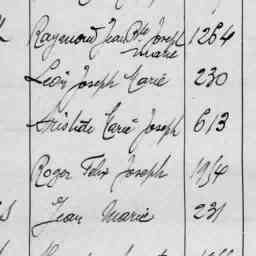 Raymond Jean Bte Joseph 1264
Marie
Léon Joseph Marie 230
Aristide Marie Joseph 613
Roger Felix Joseph 1954
Jean Marie 231